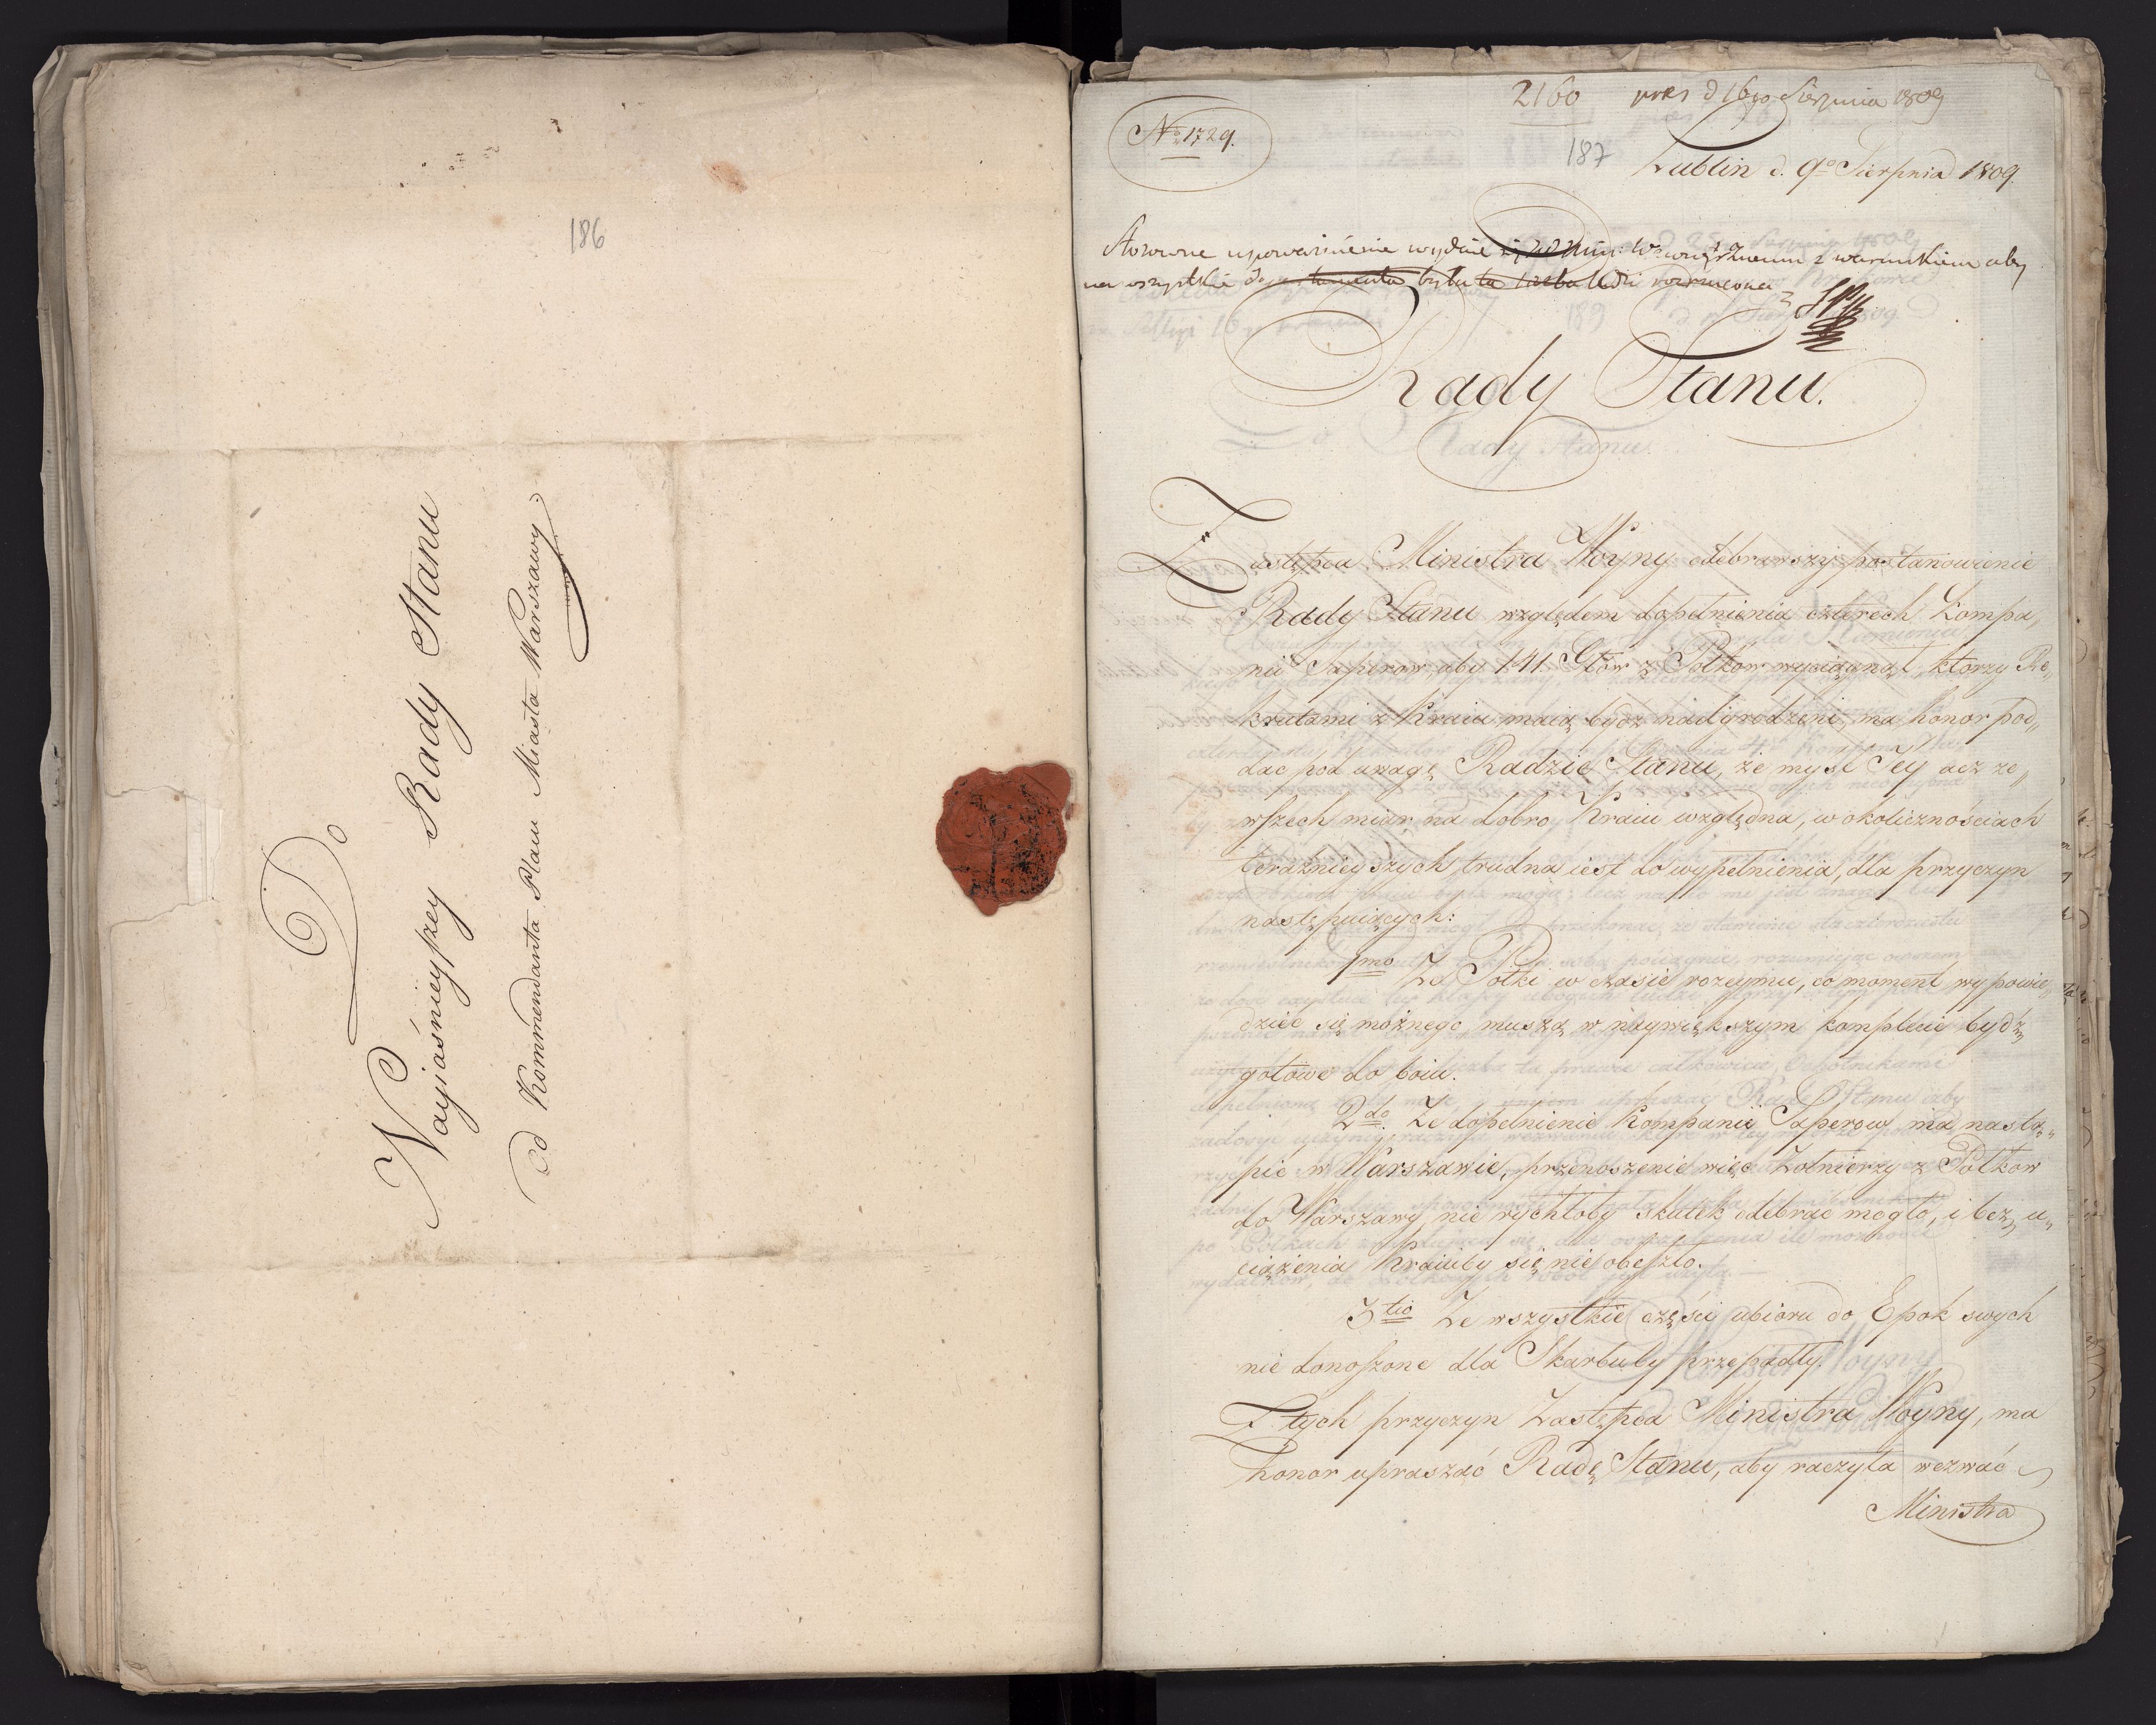 186
Do
Nayiaśnieyszey Rady Stanu
od Kommendanta Placu Miasta Warszawy
2160 pres d 16go Sierpnia 1809
No 1729.
187
Lublin d. 9o Sierpnia 1809.
Stosowne upoważnienie wydane z warunkiem aby
na wszystkie departamenta była ta liczba ludzi rozrzucona
Do Rady Stanu.
Zastępca Ministra Woyny odebrawszy postanowienie
Rady Stanu względem dopełnienia czterech Kompa„
nii Saperow, aby 141 Głów z Półkow wyciągnął, ktorzy Re„
krutami z Kraiu maią bydz nadgrodzeni, ma honor pod„
dac pod uwagę Radzie Stanu, że myśl Jey acz ze„
wszech miar na dobro Kraiu względna, w okolicznościach
teraznieyszych trudna iest do wypełnienia, dla przyczyn
następuiących:
1mo Ze Półki w czasie rozeymu, co moment wypowie„
dziec się możnego, muszą w naywiększym komplecie bydź
gotowe do boiu.
2do. Ze dopełnienie Kompanii Saperow, ma nastą„
pić w Warszawie, przenoszenie więc Zołnierzy z Półkow
do Warszawy, nie rychłoby skutek odebrac mogło, i bez u„
ciążenia Kraiuby się nie obeszło.
3tio Ze wszystkie części ubioru do Epok swych
nie donoszone dla Skarbuby przepadły.
Z tych przyczyn Zastępca Ministra Woyny, ma
honor upraszać Radę Stanu, aby raczyła wezwać
Ministra